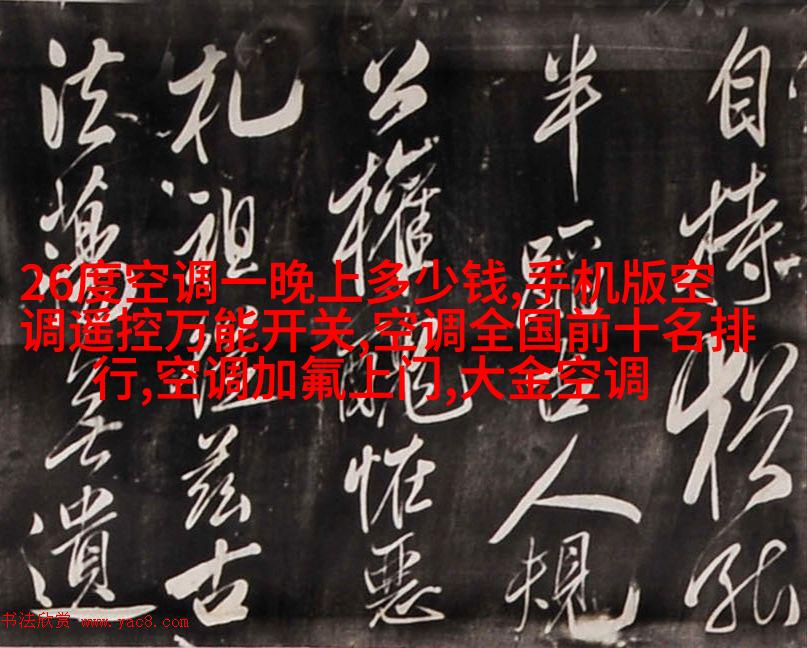 自持猶能
半蹈古人規
公權醜恠惡
札祖從茲古
法蕩無遺
26度空调一晚上多少钱,手机版空
调遥控万能开关,空调全国前十名排
行,空调加氟上门,大金空调
书法欣赏 www.yac8.com